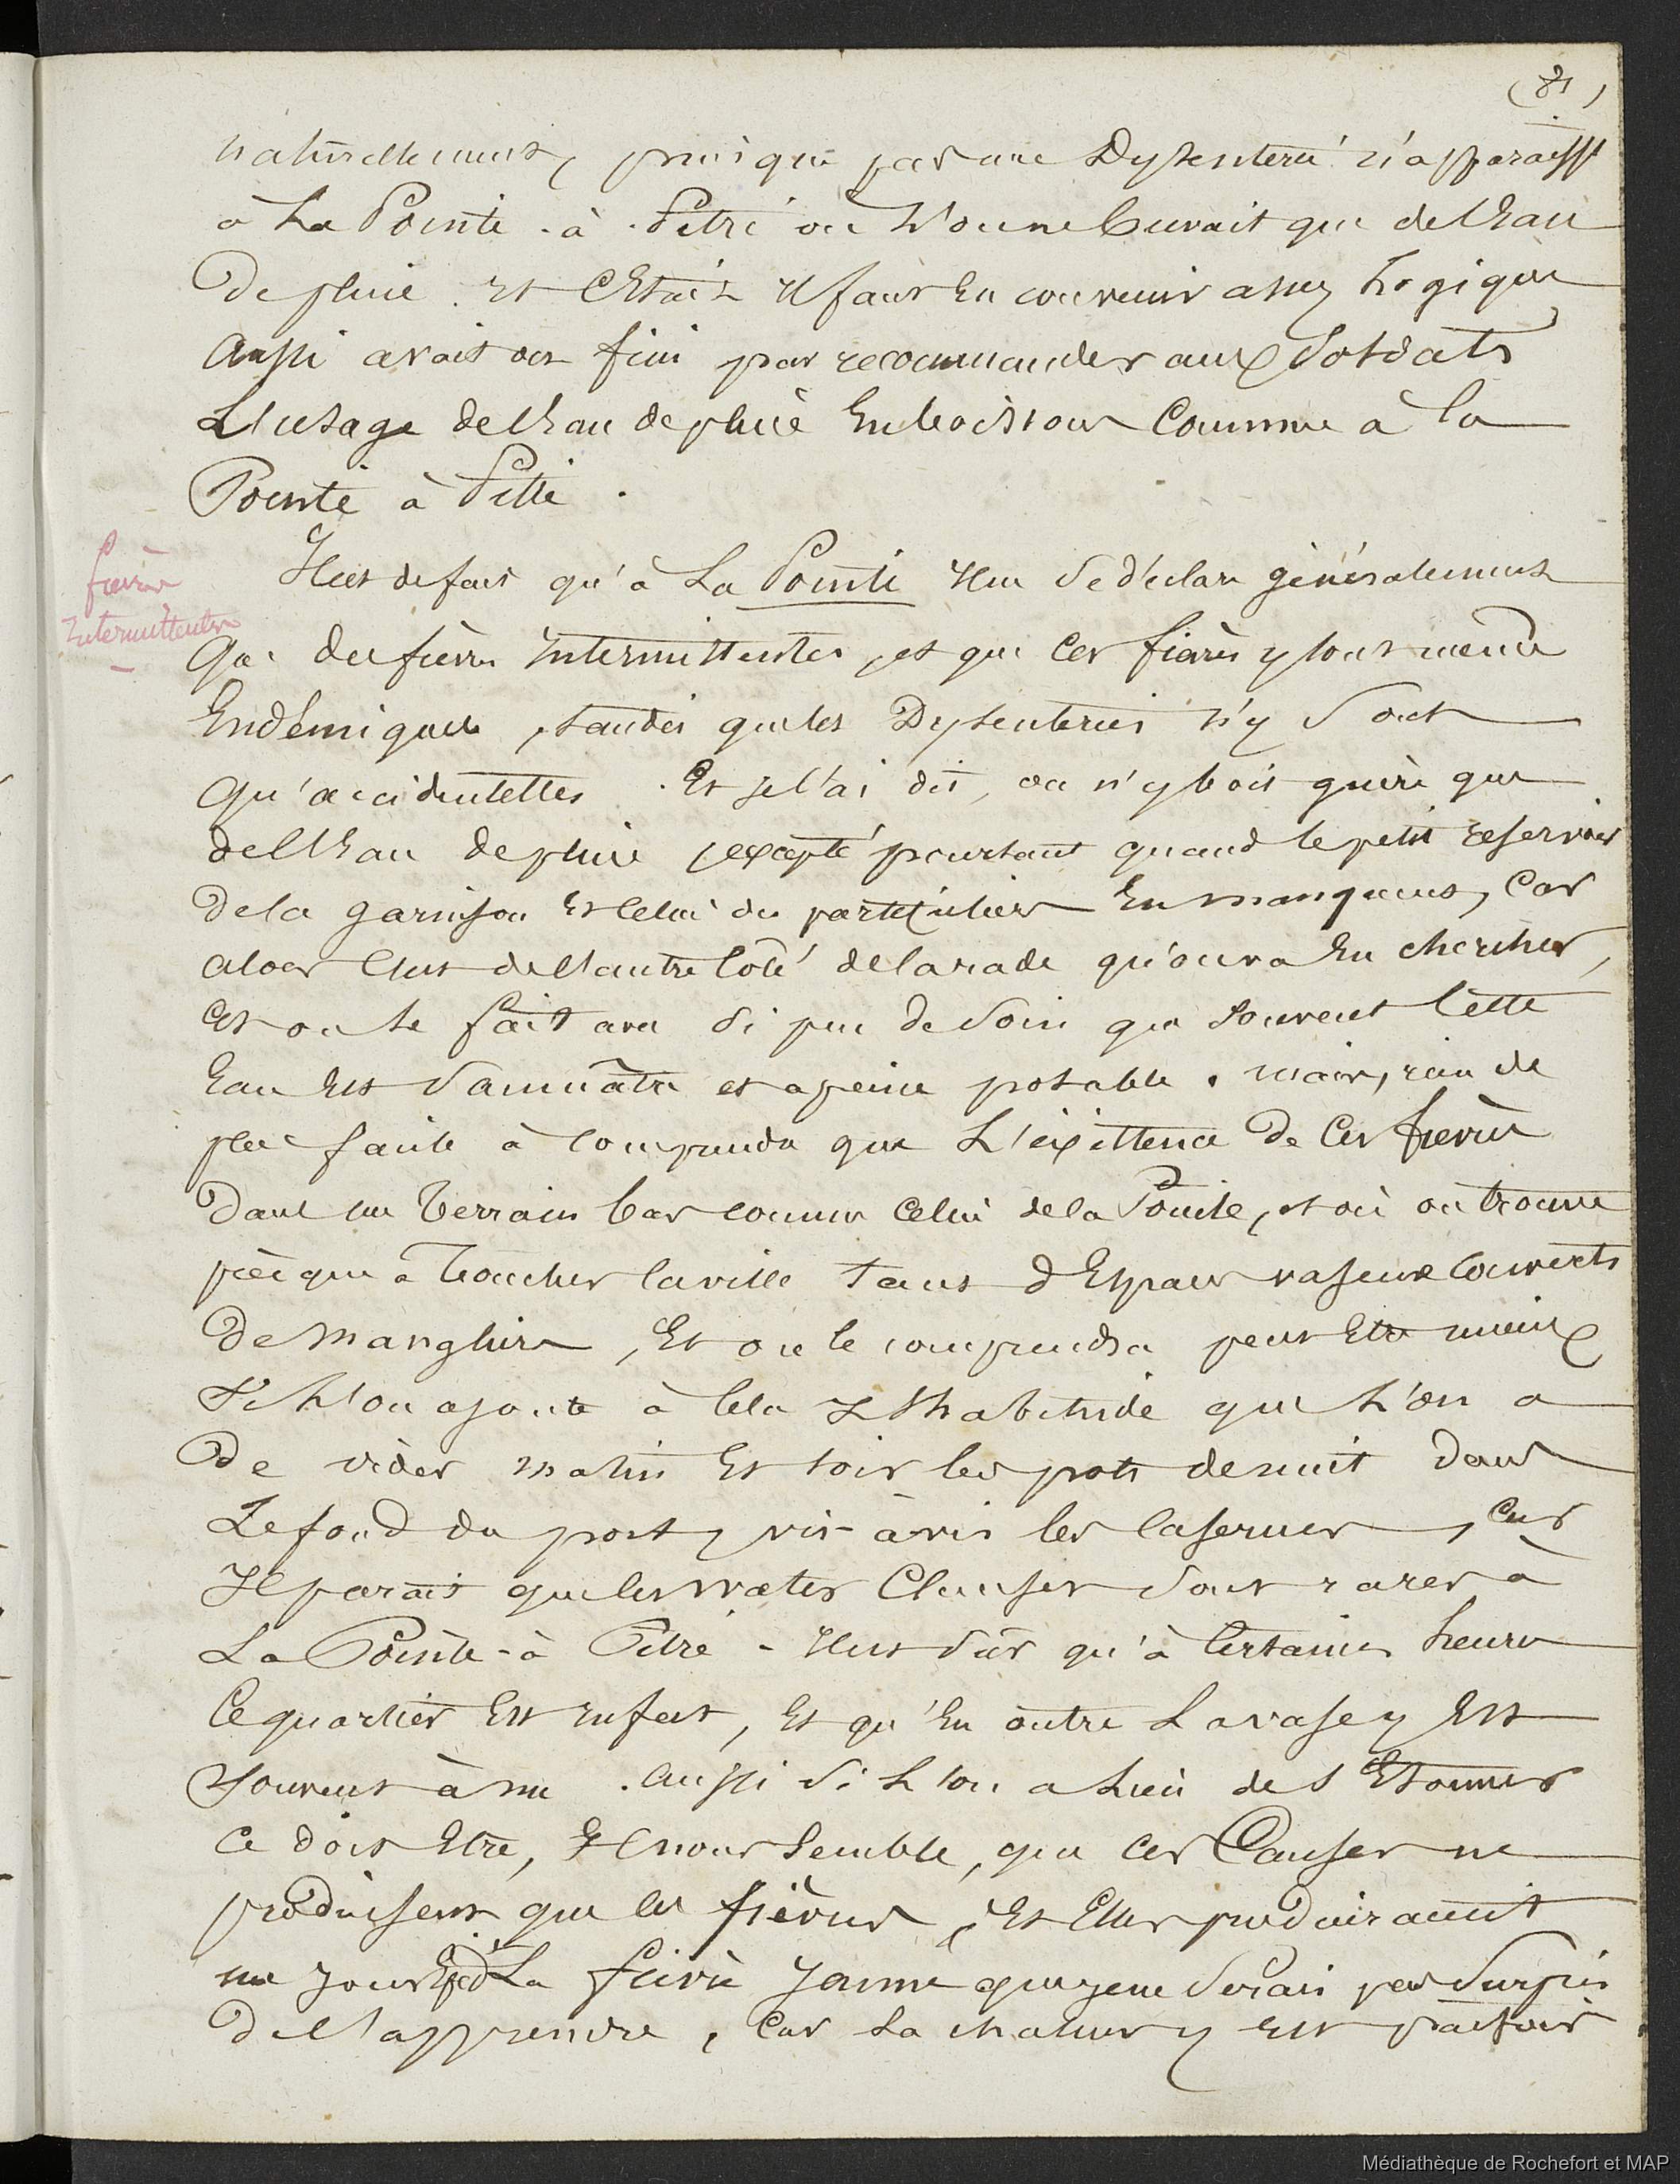 naturellement, puisque pas une Dysenterie n'apparaissait
à La Pointe-à-Pitre où L'on ne buvait que de l'Eau
De pluie. Et C'Etait Il faut En convenir assez Logique
Aussi avait on fini par recommander aux Soldats
L'usage de l'Eau de pluie En boisson Comme à la
Pointe à Pitre.
fièvres
Intermittentes
Il est de fait qu'à La Pointe Il ne se déclare généralement
Que des fièvres Intermittentes, et que Ces fièvres y sont même
Endémiques, tandis que les Dysenteries n'y Sont
Qu'accidentelles. Et je l'ai dit, on n'y boit guère que
de l'Eau de pluie, excepté pourtant quand le petit réservoir
De la garnison Et Celui du particulier En manquent, Car
alors C'est de l'autre Côté de la rade qu'on va En chercher,
Et on le fait avec si peu de Soin que Souvent Cette
Eau Est Saumâtre et à peine potable. mais, rien de
plus facile à Comprendre que L'existence de Ces fièvres
Dans un Terrain bas comme Celui de la Pointe, et où on trouve
presque à Toucher la ville Tant d'Espaces vaseux Couverts
De Mangliers, Et on le comprendra peut Etre mieux
Si L'on ajoute à Cela L'habitude que L'on a
De vider matin Et soir les pots de nuit Dans
Le fond du port, vis-à-vis les Casernes, Car
Il parait que les water Closets Sont rares à
La Pointe-à Pitre - Il est Sûr qu'à Certaines heures
Ce quartier Est infect, Et qu'En outre La vase y Est
Souvent à nu. Aussi Si L'on a Lieu de s'Etonner
Ce doit Etre, Il nous Semble, que Ces Causes ne
produisent que les fièvres, Et Elles produiraient
un jour La fièvre Jaune que je ne Serais pas Surpris
De l'apprendre, Car La chaleur y est parfois
Médiathèque de Rochefort et MAP